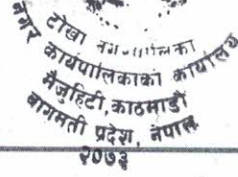 टोखा नगरपालिका
नगर कार्यपालिकाको कार्यालय
मैजुहिटी, काठमाडौं
बागमती प्रदेश, नेपाल
२०७३